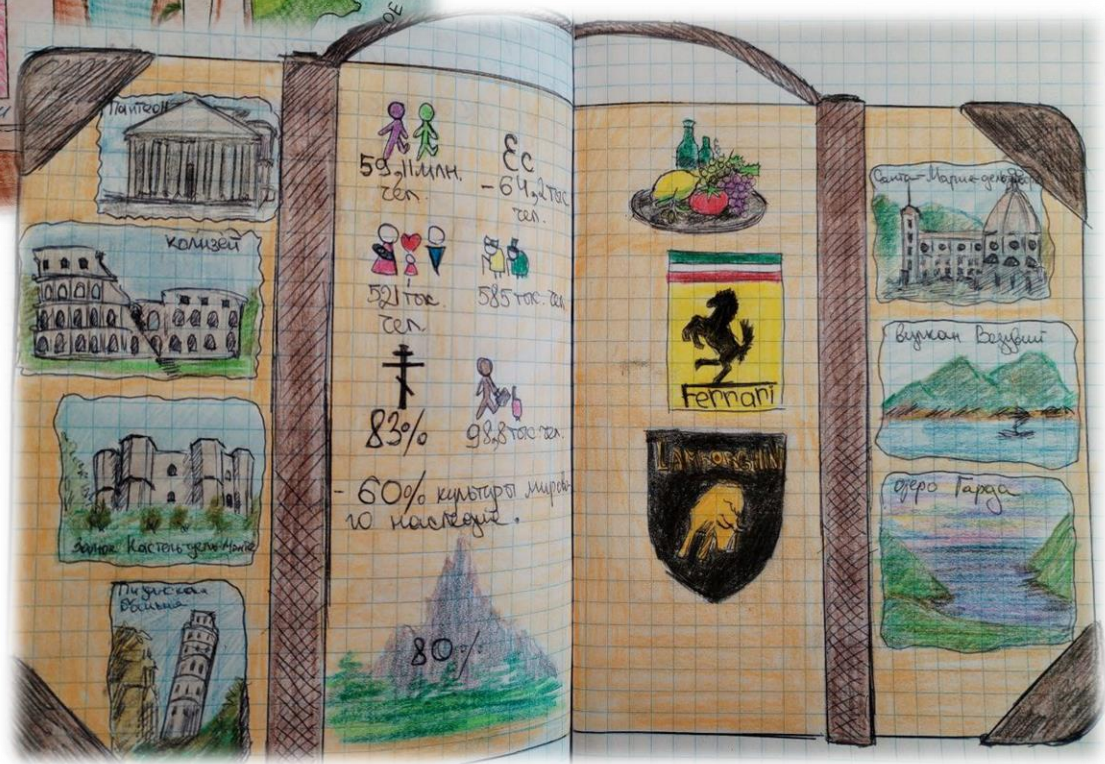 ОЕ
Пантеон
Колизей
Замок Кастель-дель-Монте
Пизанская
башня
59,11 млн.
чел.
ЕС
- 64,2 тыс
чел.
521 тыс.
чел.
585 тыс. чел
83%
98,8 тыс. чел.
- 60% культуры мирово-
го наследия.
80%
Ferrari
LAMBORGHIN
Санта-Мария-дель
вулкан Везувий
озеро Гарда